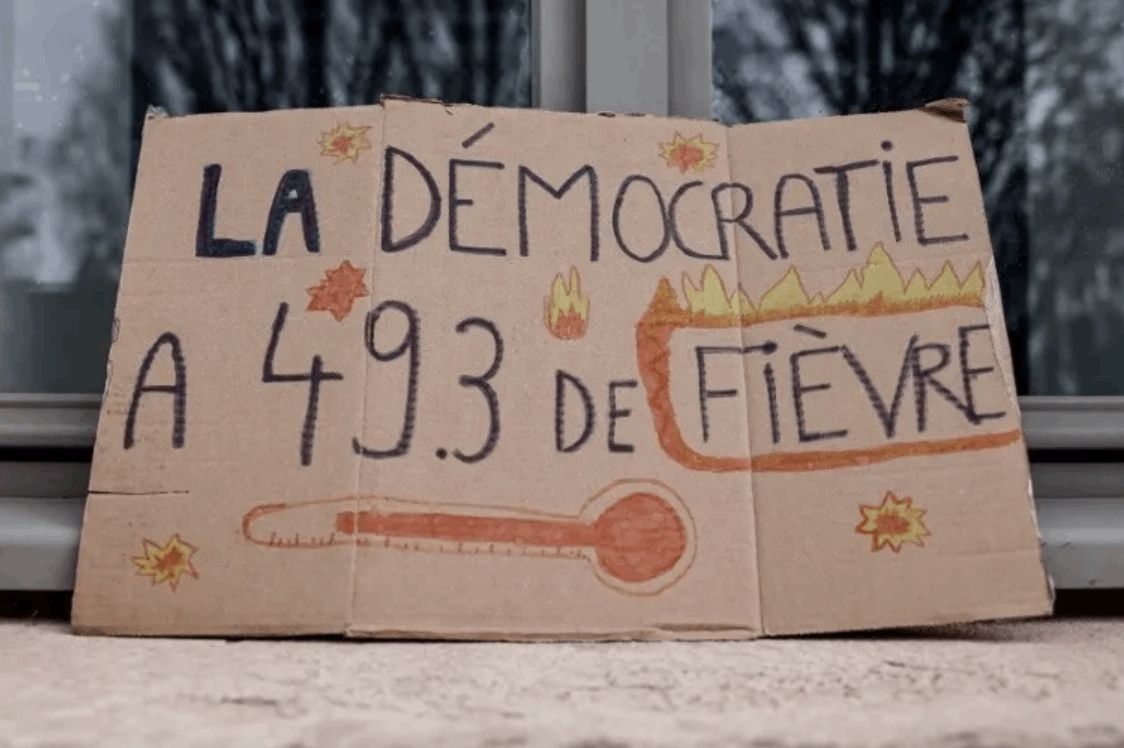 LA DÉMOCRATIE
A 49.3 DE FIÈVRE